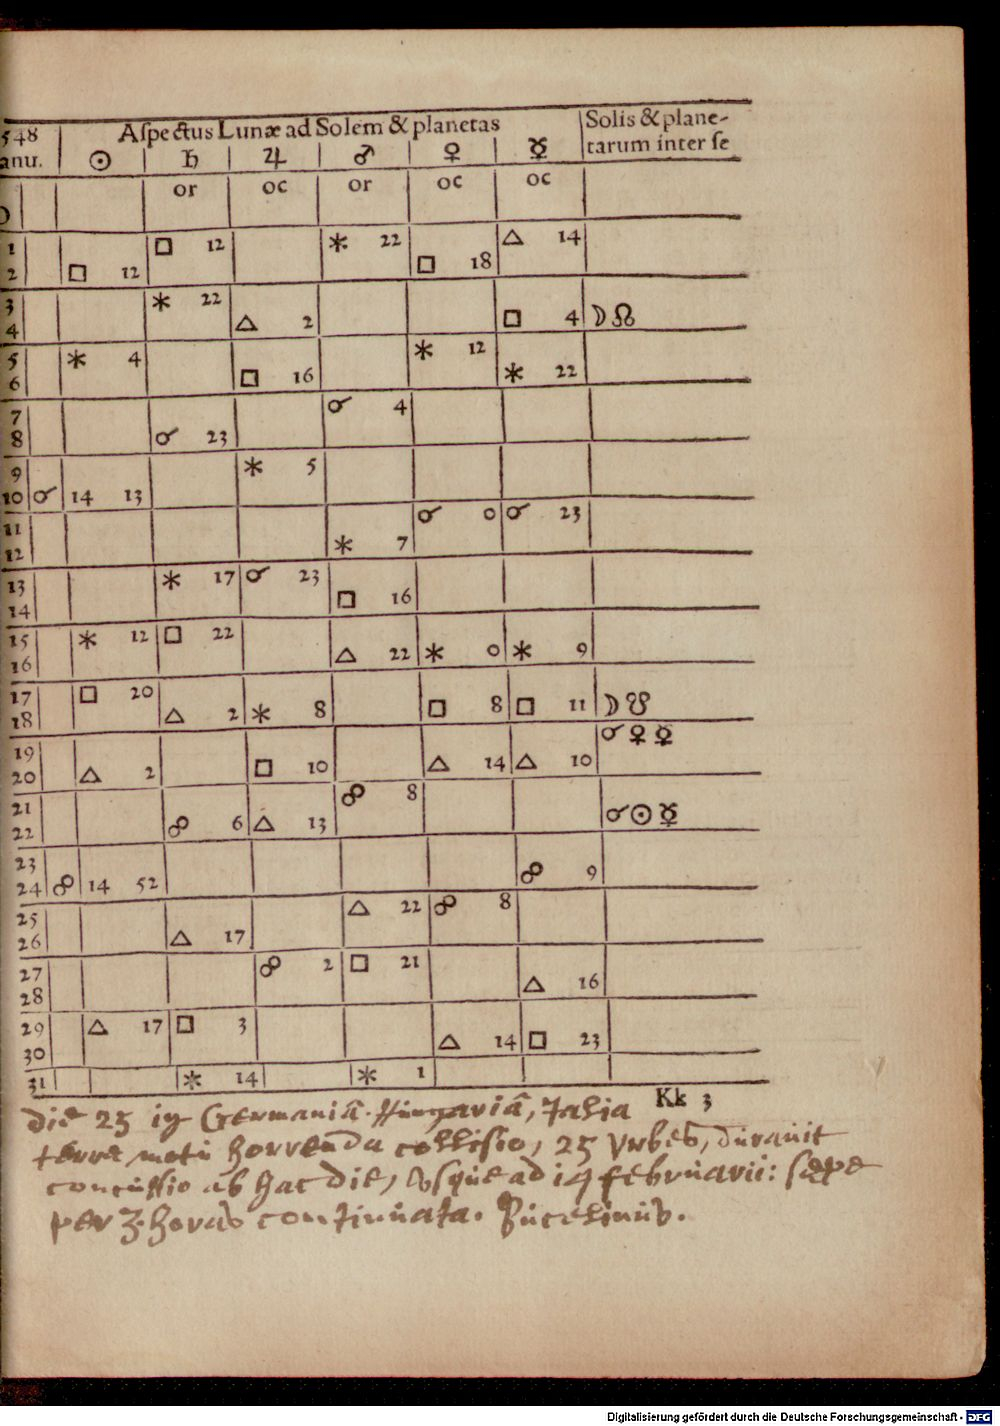 548 Aſpectus Lunæ ad Solem & planetas Solis & plane-
anu. ☉ ♄ ♃ ♂ ♀ ☿ tarum inter ſe
☽ or oc or oc oc
1 □ 12 ⚹ 22 △ 14
2 □ 12 □ 18
3 ⚹ 22
4 △ 2 □ 4 ☽☊
5 ⚹ 4 ⚹ 12
6 □ 16 ⚹ 22
7 ☌ 4
8 ☌ 23
9 ⚹ 5
10 ☌ 14 13
11 ☌ 0 ☌ 23
12 ⚹ 7
13 ⚹ 17 ☌ 23
14 □ 16
15 ⚹ 12 □ 22
16 △ 22 ⚹ 0 ⚹ 9
17 □ 20
18 △ 2 ⚹ 8 □ 8 □ 11 ☽☋
19 ☌ ♀ ☿
20 △ 2 □ 10 △ 14 △ 10
21 ☍ 8
22 ☍ 6 △ 13 ☌☉☿
23
24 ☍ 14 52 ☍ 9
25 △ 22 ☍ 8
26 △ 17
27 ☍ 2 □ 21
28 △ 16
29 △ 17 □ 3
30 △ 14 □ 23
31 ⚹ 14 ⚹ 1
Kk 3
die 25 in Germaniâ. Hungariâ, Italia
terræ motu horrenda collisio, 25 Vrbes, durauit
concussio ab hac die, vsque ad 14 februarii: sæpe
per 3. horas continuata. Bucelinus.
Digitalisierung gefördert durch die Deutsche Forschungsgemeinschaft - DFG